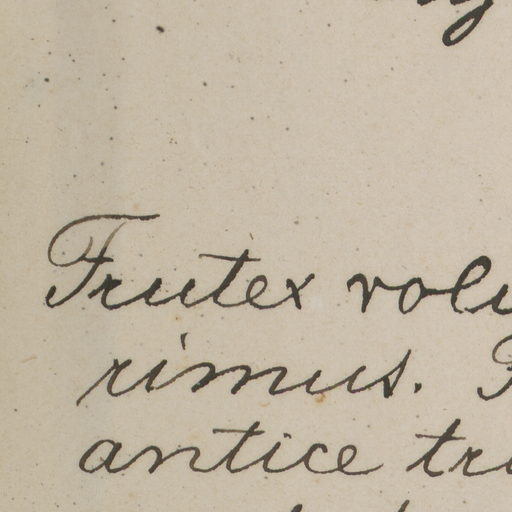 Frutex volu
rimus.
antice tri